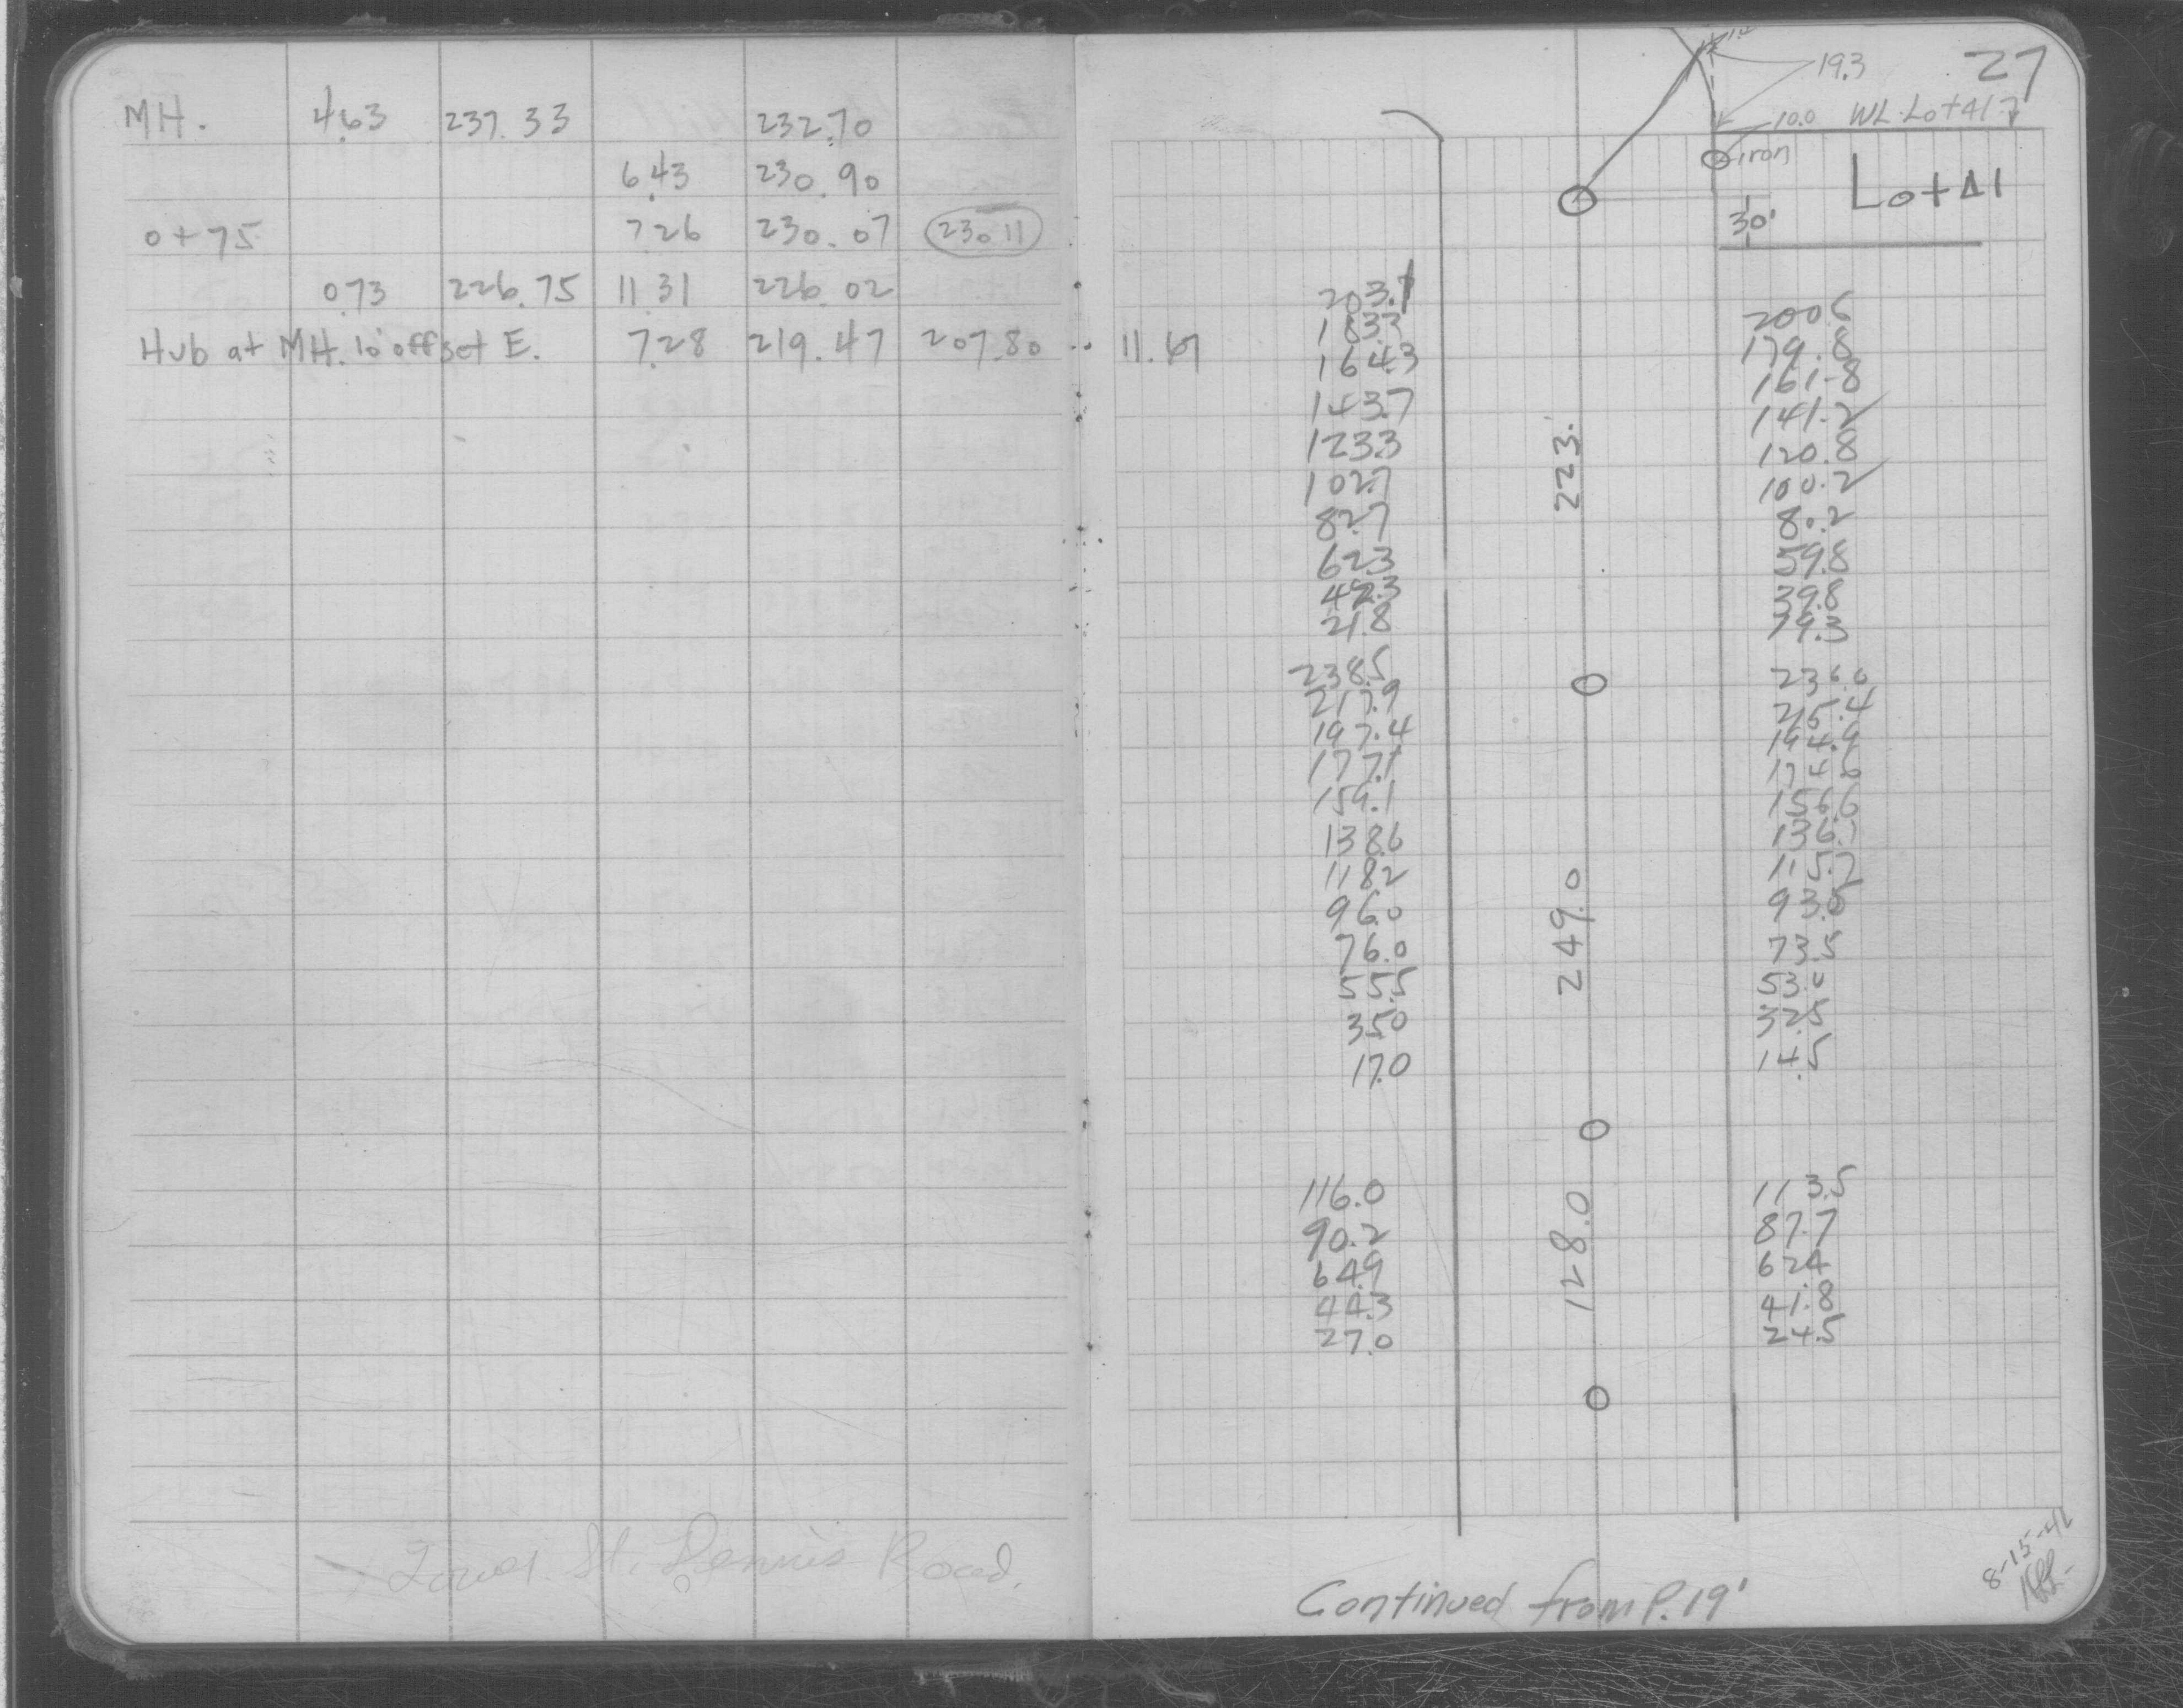 MH. 4.63 237.33 232.70
6.43 230.90
0+75 7.26 230.07 230.11
0.73 226.75 11.31 226.02
Hub at MH. 10' offset E. 7.28 219.47 207.80 11.67
St. Dennis Road.
27
19.3
10.0 WL. Lot 41
iron
Lot 41
30'
203.1
183.3
164.3
143.7
123.3
102.7
82.7
62.3
42.3
21.8
238.5
217.9
197.4
177.1
159.1
138.6
118.2
96.0
76.0
55.5
35.0
17.0
116.0
90.2
64.9
44.3
27.0
223.
249.0
128.0
200.6
179.8
161.8
141.2
120.8
100.2
80.2
59.8
39.8
19.3
236.0
215.4
194.9
174.6
156.6
136.1
115.7
93.5
73.5
53.0
32.5
14.5
113.5
87.7
62.4
41.8
24.5
Continued from P. 19'
8-15-42